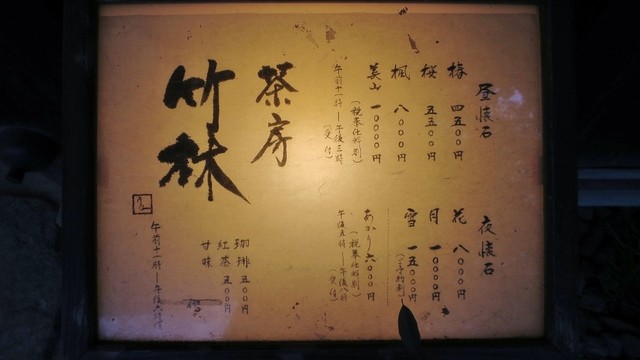 昼懐石
梅 四五〇〇円
桜 五五〇〇円
楓 八〇〇〇円
美山 一〇〇〇〇円
(税奉仕料別)
午前十一時―午後三時
(受付)
夜懐石
花 八〇〇〇円
月 一〇〇〇〇円
雪 一五〇〇〇円
(ご予約制)
あかり 六〇〇〇円
(税奉仕料別)
午後五時―午後八時
(受付)
茶房
竹
珈琲 五〇〇円
紅茶 五〇〇円
甘味
午前十一時―午後六時